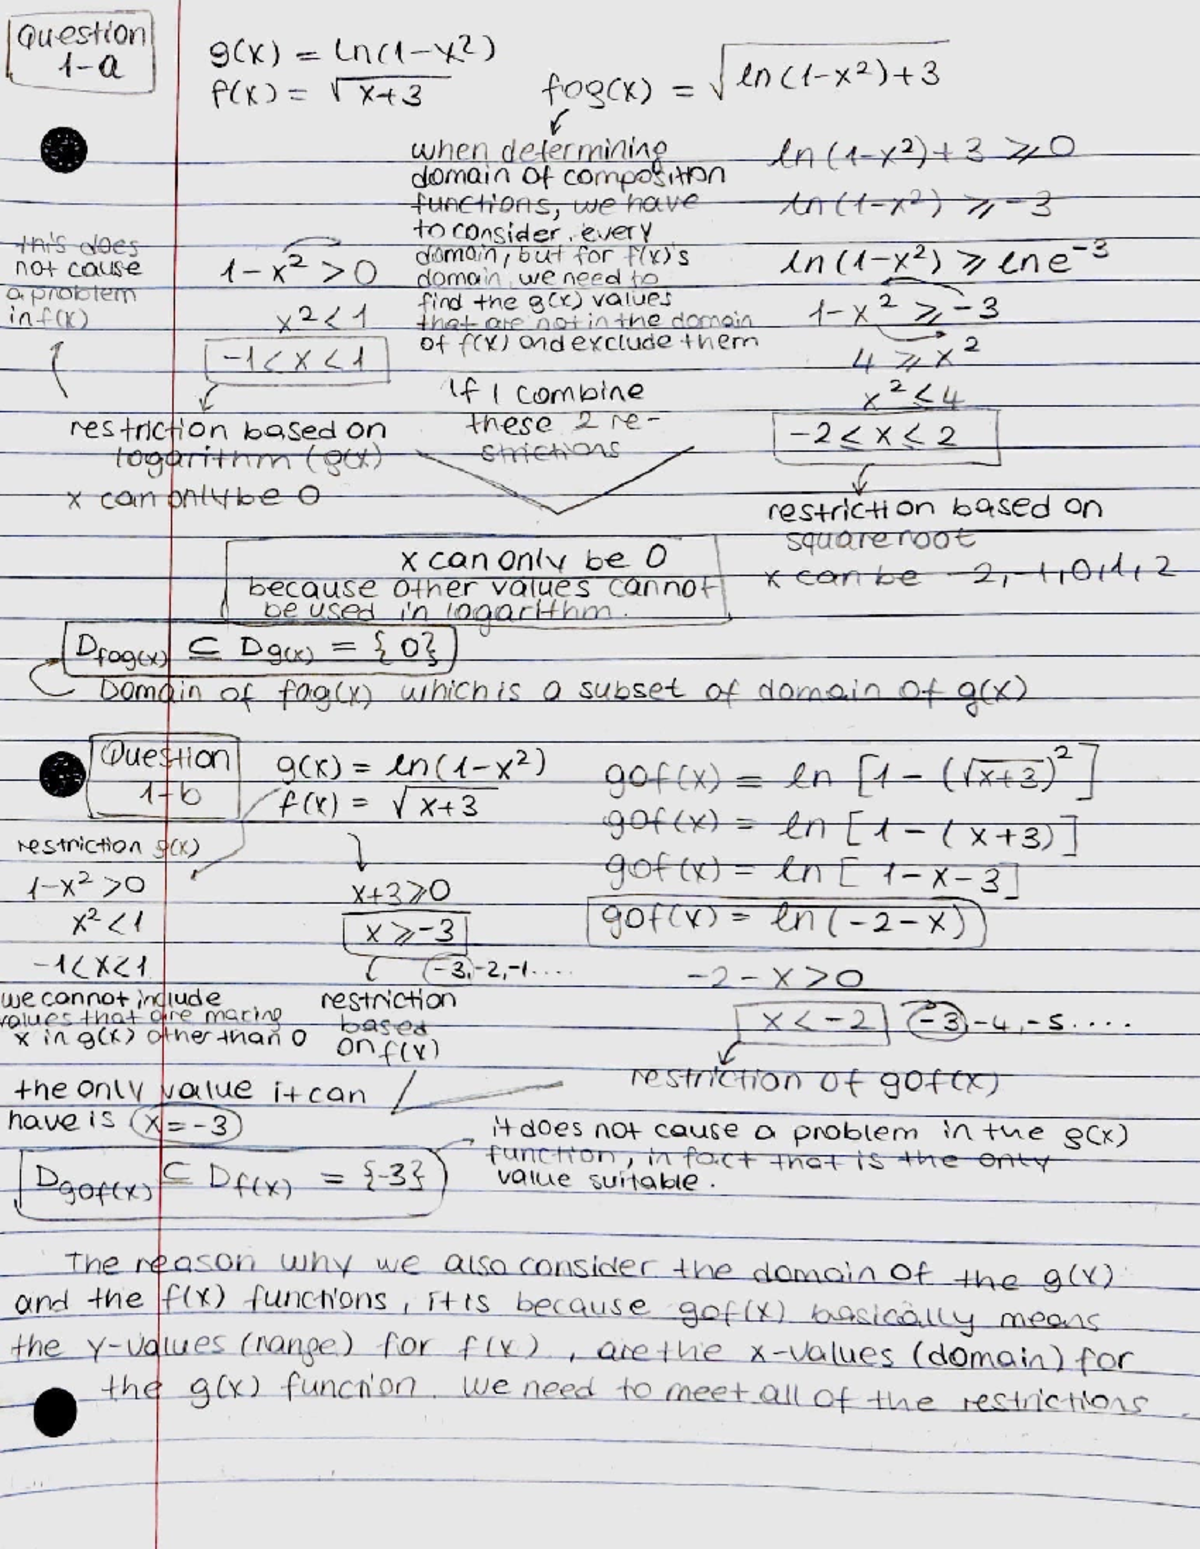 Question
1-a
g(x) = ln(1-x²)
f(x) = √x+3
fog(x) = √ln(1-x²)+3
when determining
domain of composition
functions, we have
to consider every
domain, but for f(x)'s
domain we need to
find the g(x) values
that are not in the domain
of f(x) and exclude them
ln(1-x²)+3 ⩾ 0
ln(1-x²) ⩾ -3
ln(1-x²) ⩾ lne⁻³
1-x² ⩾ -3
4 ⩾ x²
x² < 4
-2 < x < 2
this does
not cause
a problem
in f(x)
1-x² > 0
x² < 1
-1 < x < 1
If I combine
these 2 re-
strictions
restriction based on
logarithm (g(x)
x can only be 0
restriction based on
square root
x can be -2,-1,0,1,2
x can only be 0
because other values cannot
be used in logarithm.
Dfog(x) ⊆ Dg(x) = {0}
Domain of fog(x) which is a subset of domain of g(x)
Question
1-b
g(x) = ln(1-x²)
f(x) = √x+3
gof(x) = ln [1-(√x+3)²]
gof(x) = ln [1-(x+3)]
gof(x) = ln [1-x-3]
gof(x) = ln(-2-x)
restriction g(x)
1-x² > 0
x² < 1
-1 < x < 1
we cannot include
values that are making
x in g(x) other than 0
x+3 ⩾ 0
x ⩾ -3
-3,-2,-1....
restriction
based
on f(x)
-2-x > 0
x < -2 -3 -4,-5....
restriction of gof(x)
the only value it can
have is x = -3
Dgof(x) ⊆ Df(x) = {-3}
it does not cause a problem in the g(x)
function, in fact that is the only
value suitable.
The reason why we also consider the domain of the g(x)
and the f(x) functions, it is because gof(x) basically means
the y-values (range) for f(x), are the x-values (domain) for
the g(x) function. We need to meet all of the restrictions.